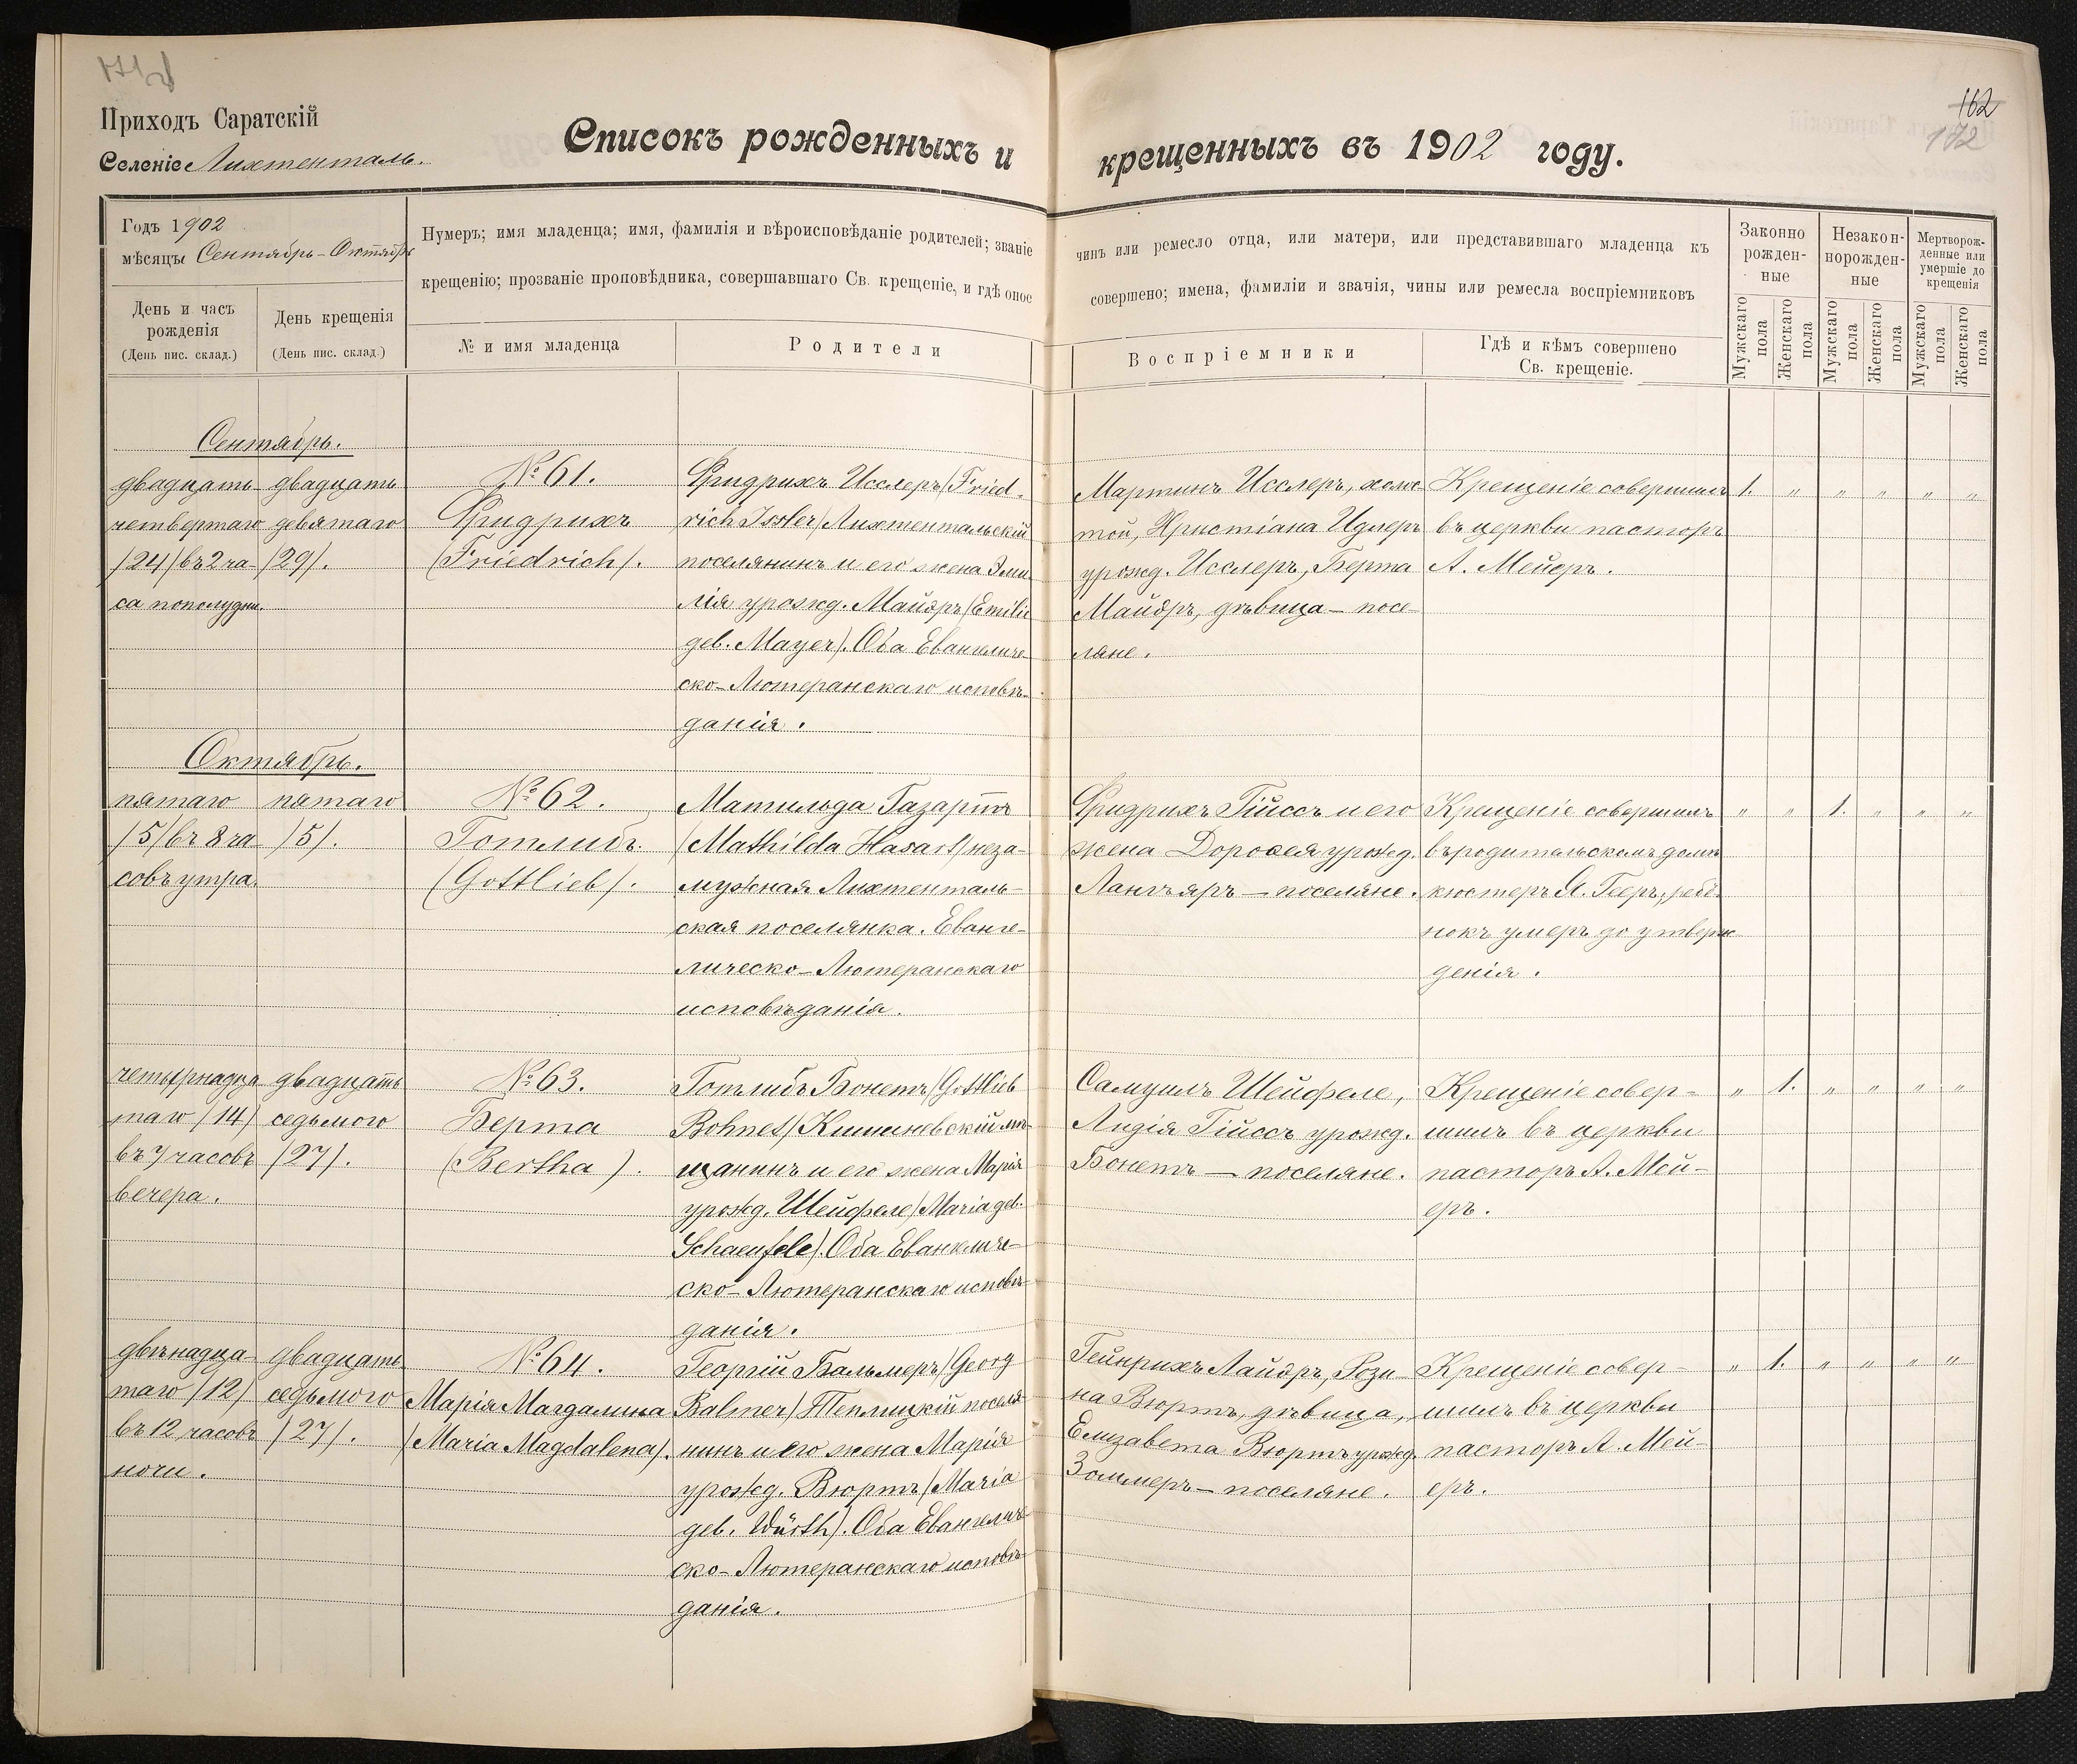 Приходъ Саратскій
Селеніе Лихтенталь.
Списокъ рожденныхъ и крещенныхъ въ 1902 году.
162
172
Годъ 1902
мѣсяцы Сентябрь-Октябрь
День и часъ рожденія
(День пис. склад.)
День крещенія
(День пис. склад.)
Нумеръ; имя младенца; имя, фамилія и вѣроисповѣданіе родителей; званіе
чинъ или ремесло отца, или матери, или представившаго младенца къ
крещенію; прозваніе проповѣдника, совершавшаго Св. крещеніе, и гдѣ оное
совершено; имена, фамиліи и званія, чины или ремесла воспріемниковъ
№ и имя младенца
Родители
Воспріемники
Гдѣ и кѣмъ совершено
Св. крещеніе.
Законно рожден-ные
Незакон-норожден-ные
Мертворож-денные или умершіе до крещенія
Мужскаго пола
Женскаго пола
Мужскаго пола
Женскаго пола
Мужскаго пола
Женскаго пола
Сентябрь.
двадцать
четвертаго
/24/ въ 2 ча-
са пополудни.
двадцать
девятаго
/29/.
№ 61.
Фридрихъ
(Friedrich).
Фридрихъ Исслеръ (Fried-
rich Issler) Лихтентальскій
поселянинъ и его жена Эми-
лія урожд. Майэръ (Emilie
geb. Mayer). Оба Евангеличе-
ско-Лютеранскаго исповѣ-
данія.
Мартинъ Исслеръ, холос
той, Христіана Идлеръ
урожд. Исслеръ, Берта
Майэръ, дѣвица - посе-
ляне.
Крещеніе совершилъ
въ церкви пасторъ
А. Мейеръ.
1. " " " " "
Октябрь.
пятаго
/5/ въ 8 ча-
совъ утра.
пятаго
/5/.
№ 62.
Готлибъ
(Gottlieb).
Матильда Газартъ
(Mathilda Hasart) неза-
мужная Лихтенталь-
ская поселянка. Еванге-
лическо-Лютеранскаго
исповѣданія.
Фридрихъ Гійссъ и его
жена Доротея урожд.
Лангъяръ - поселяне.
Крещеніе совершилъ
въ родительскомъ домѣ
кюстеръ Я. Гееръ; ребе-
нокъ умеръ до утверж
денія.
" " 1. " " "
четырнадца
таго /14/
въ 7 часовъ
вечера.
двадцать
седьмого
/27/.
№ 63.
Берта
(Bertha).
Готлибъ Бонетъ (Gottlieb
Bohnet) Кишиневскій мѣ-
щанинъ и его жена Марія
урожд. Шейфеле (Maria geb.
Schaeufele). Оба Евангеличе-
ско-Лютеранскаго исповѣ-
данія.
Самуилъ Шейфеле,
Лидія Гійссъ урожд.
Бонетъ - поселяне.
Крещеніе совер-
шилъ въ церкви
пасторъ А. Мей-
еръ.
" 1. " " " "
двѣнадца-
таго /12/
въ 12 часовъ
ночи.
двадцать
седьмого
/27/.
№ 64.
Марія Магдалина
(Maria Magdalena).
Георгій Бальмеръ (Georg
Balmer) Теплицкій поселя-
нинъ и его жена Марія
урожд. Вюртъ (Maria
geb. Würth). Оба Евангеличе-
ско-Лютеранскаго исповѣ-
данія.
Гейнрихъ Лайэръ, Рози-
на Вюртъ, дѣвица,
Елизавета Вюртъ урожд.
Зоммеръ - поселяне.
Крещеніе совер-
шилъ въ церкви
пасторъ А. Мей-
еръ.
" 1. " " " "